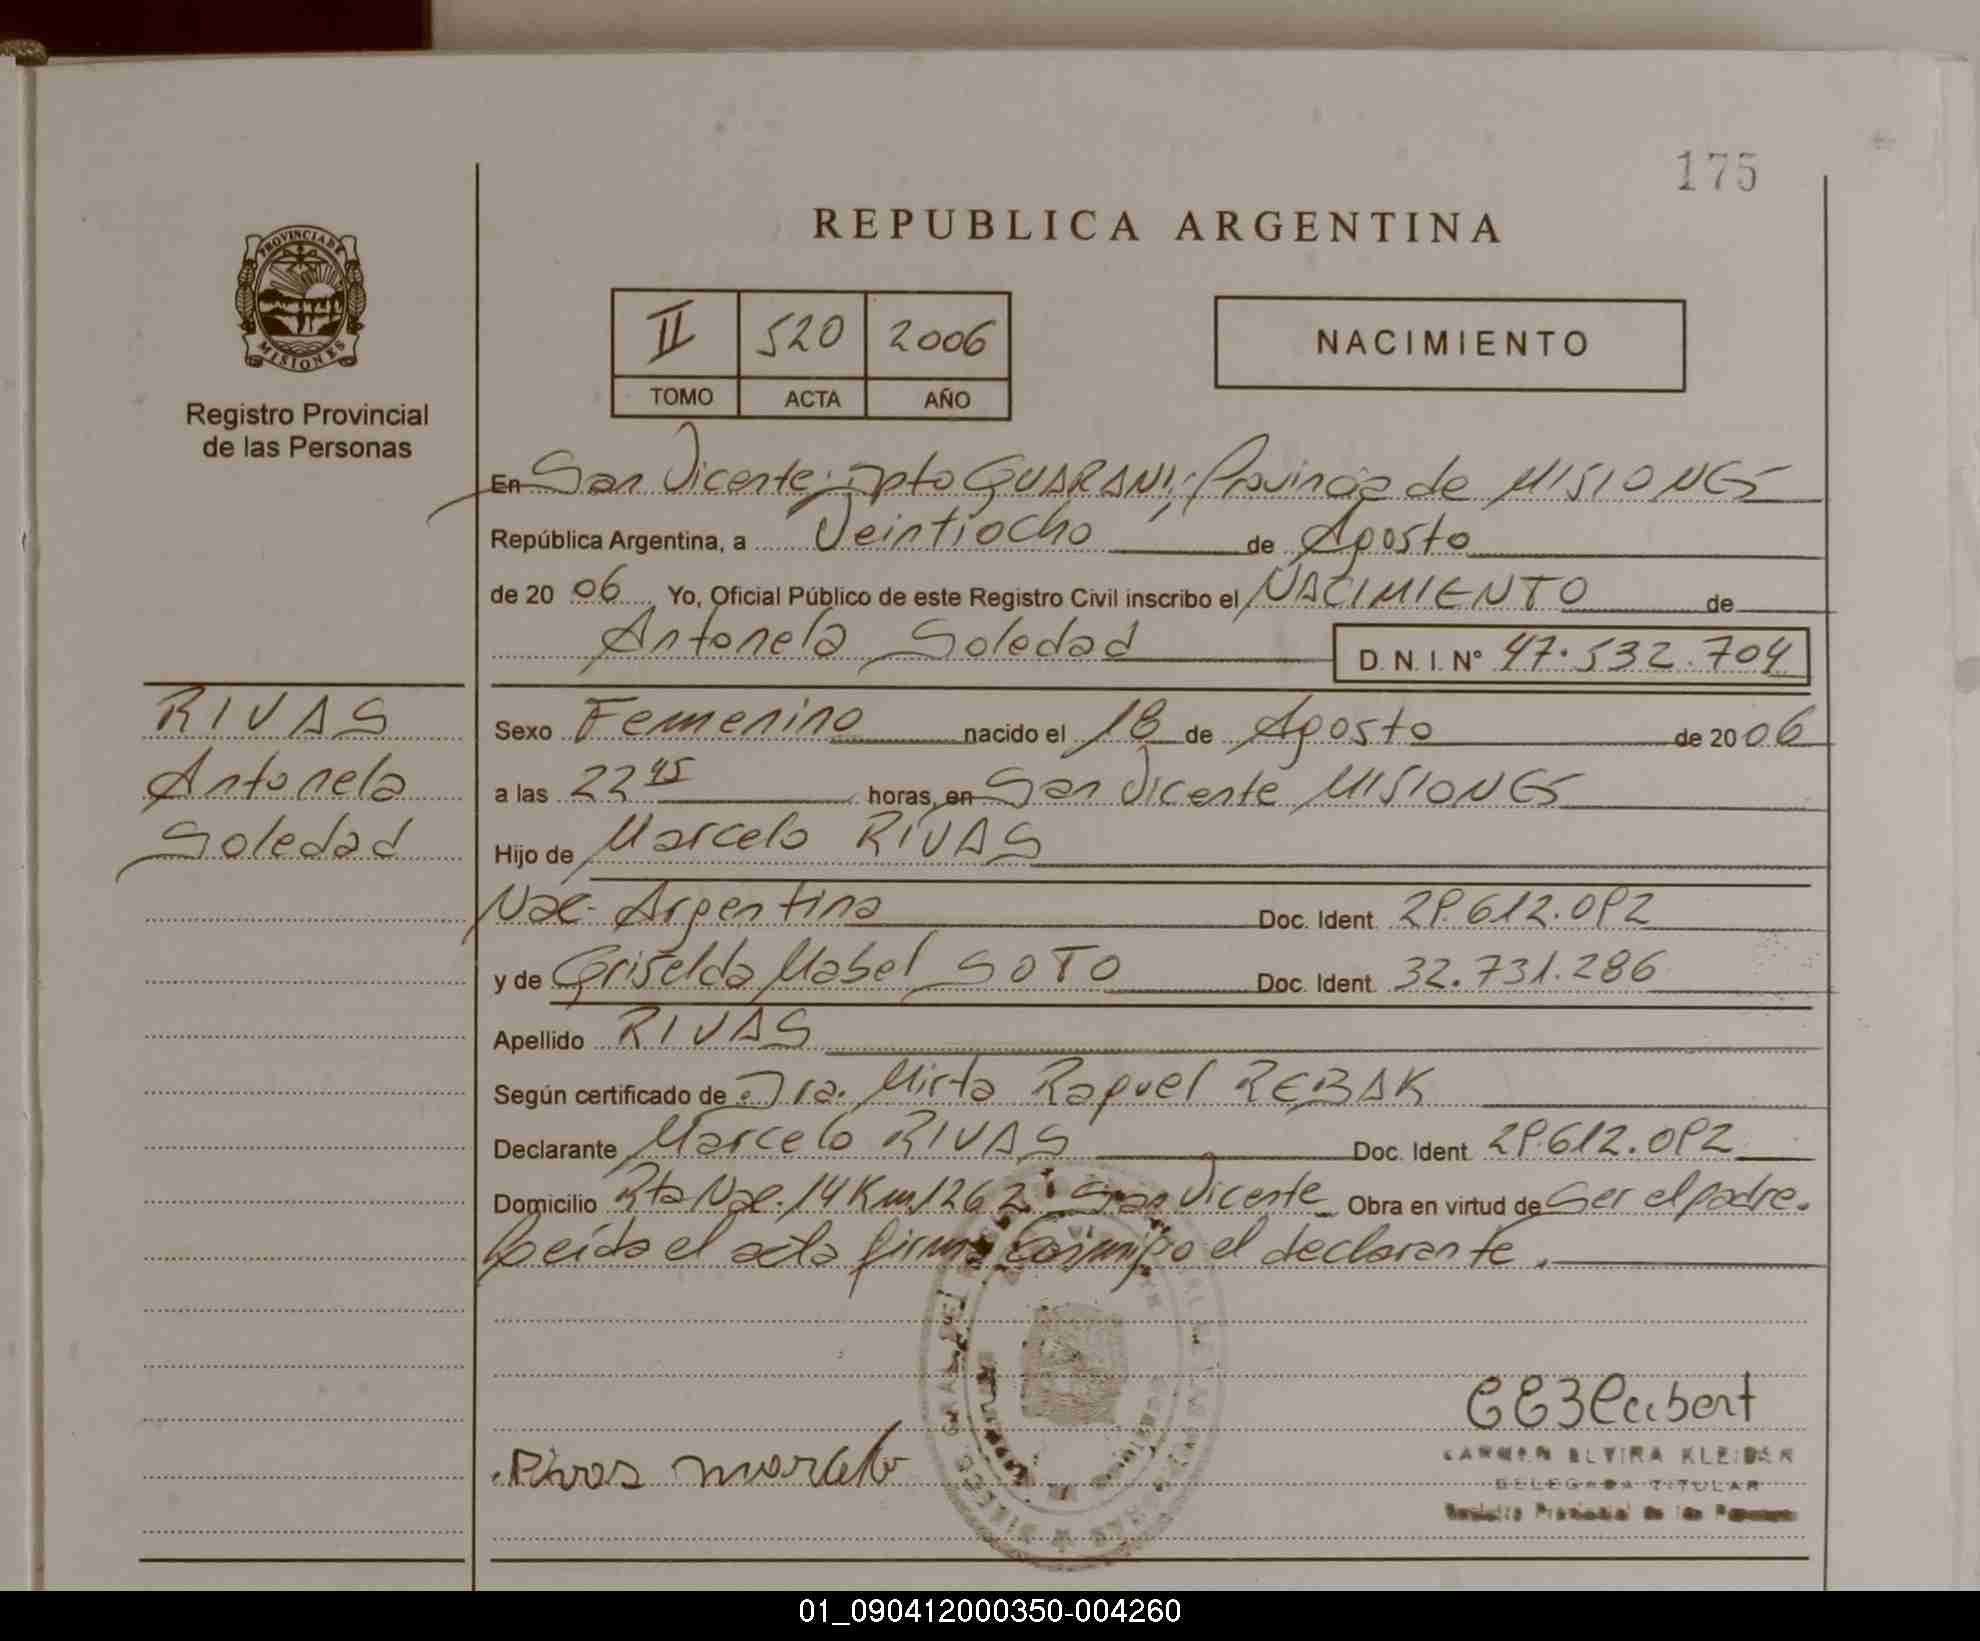 175
REPUBLICA ARGENTINA
PROVINCIA DE
MISIONES
Registro Provincial
de las Personas
II 520 2006
TOMO ACTA AÑO
NACIMIENTO
En San Vicente, Dpto GUARANI, Provincia de MISIONES
República Argentina, a Veintiocho de Agosto
de 2006 Yo, Oficial Público de este Registro Civil inscribo el NACIMIENTO de
Antonela Soledad D.N.I. Nº 47.532.704
RIVAS
Antonela
Soledad
Sexo Femenino nacido el 18 de Agosto de 2006
a las 22 45 horas, en San Vicente MISIONES
Hijo de Marcelo RIVAS
Nac. Argentina Doc. Ident. 29.612.092
y de Griselda Mabel SOTO Doc. Ident. 32.731.286
Apellido RIVAS
Según certificado de Dra. Mirta Raquel REBAK
Declarante Marcelo RIVAS Doc. Ident. 29.612.092
Domicilio Rta Nac. 14 Km 1262 San Vicente Obra en virtud de Ser el padre.
Leída el acta firma conmigo el declarante.
Rivas marcelo
CARMEN ELVIRA
DELEGADA TITULAR
Registro Provincial de las Personas
01_090412000350-004260